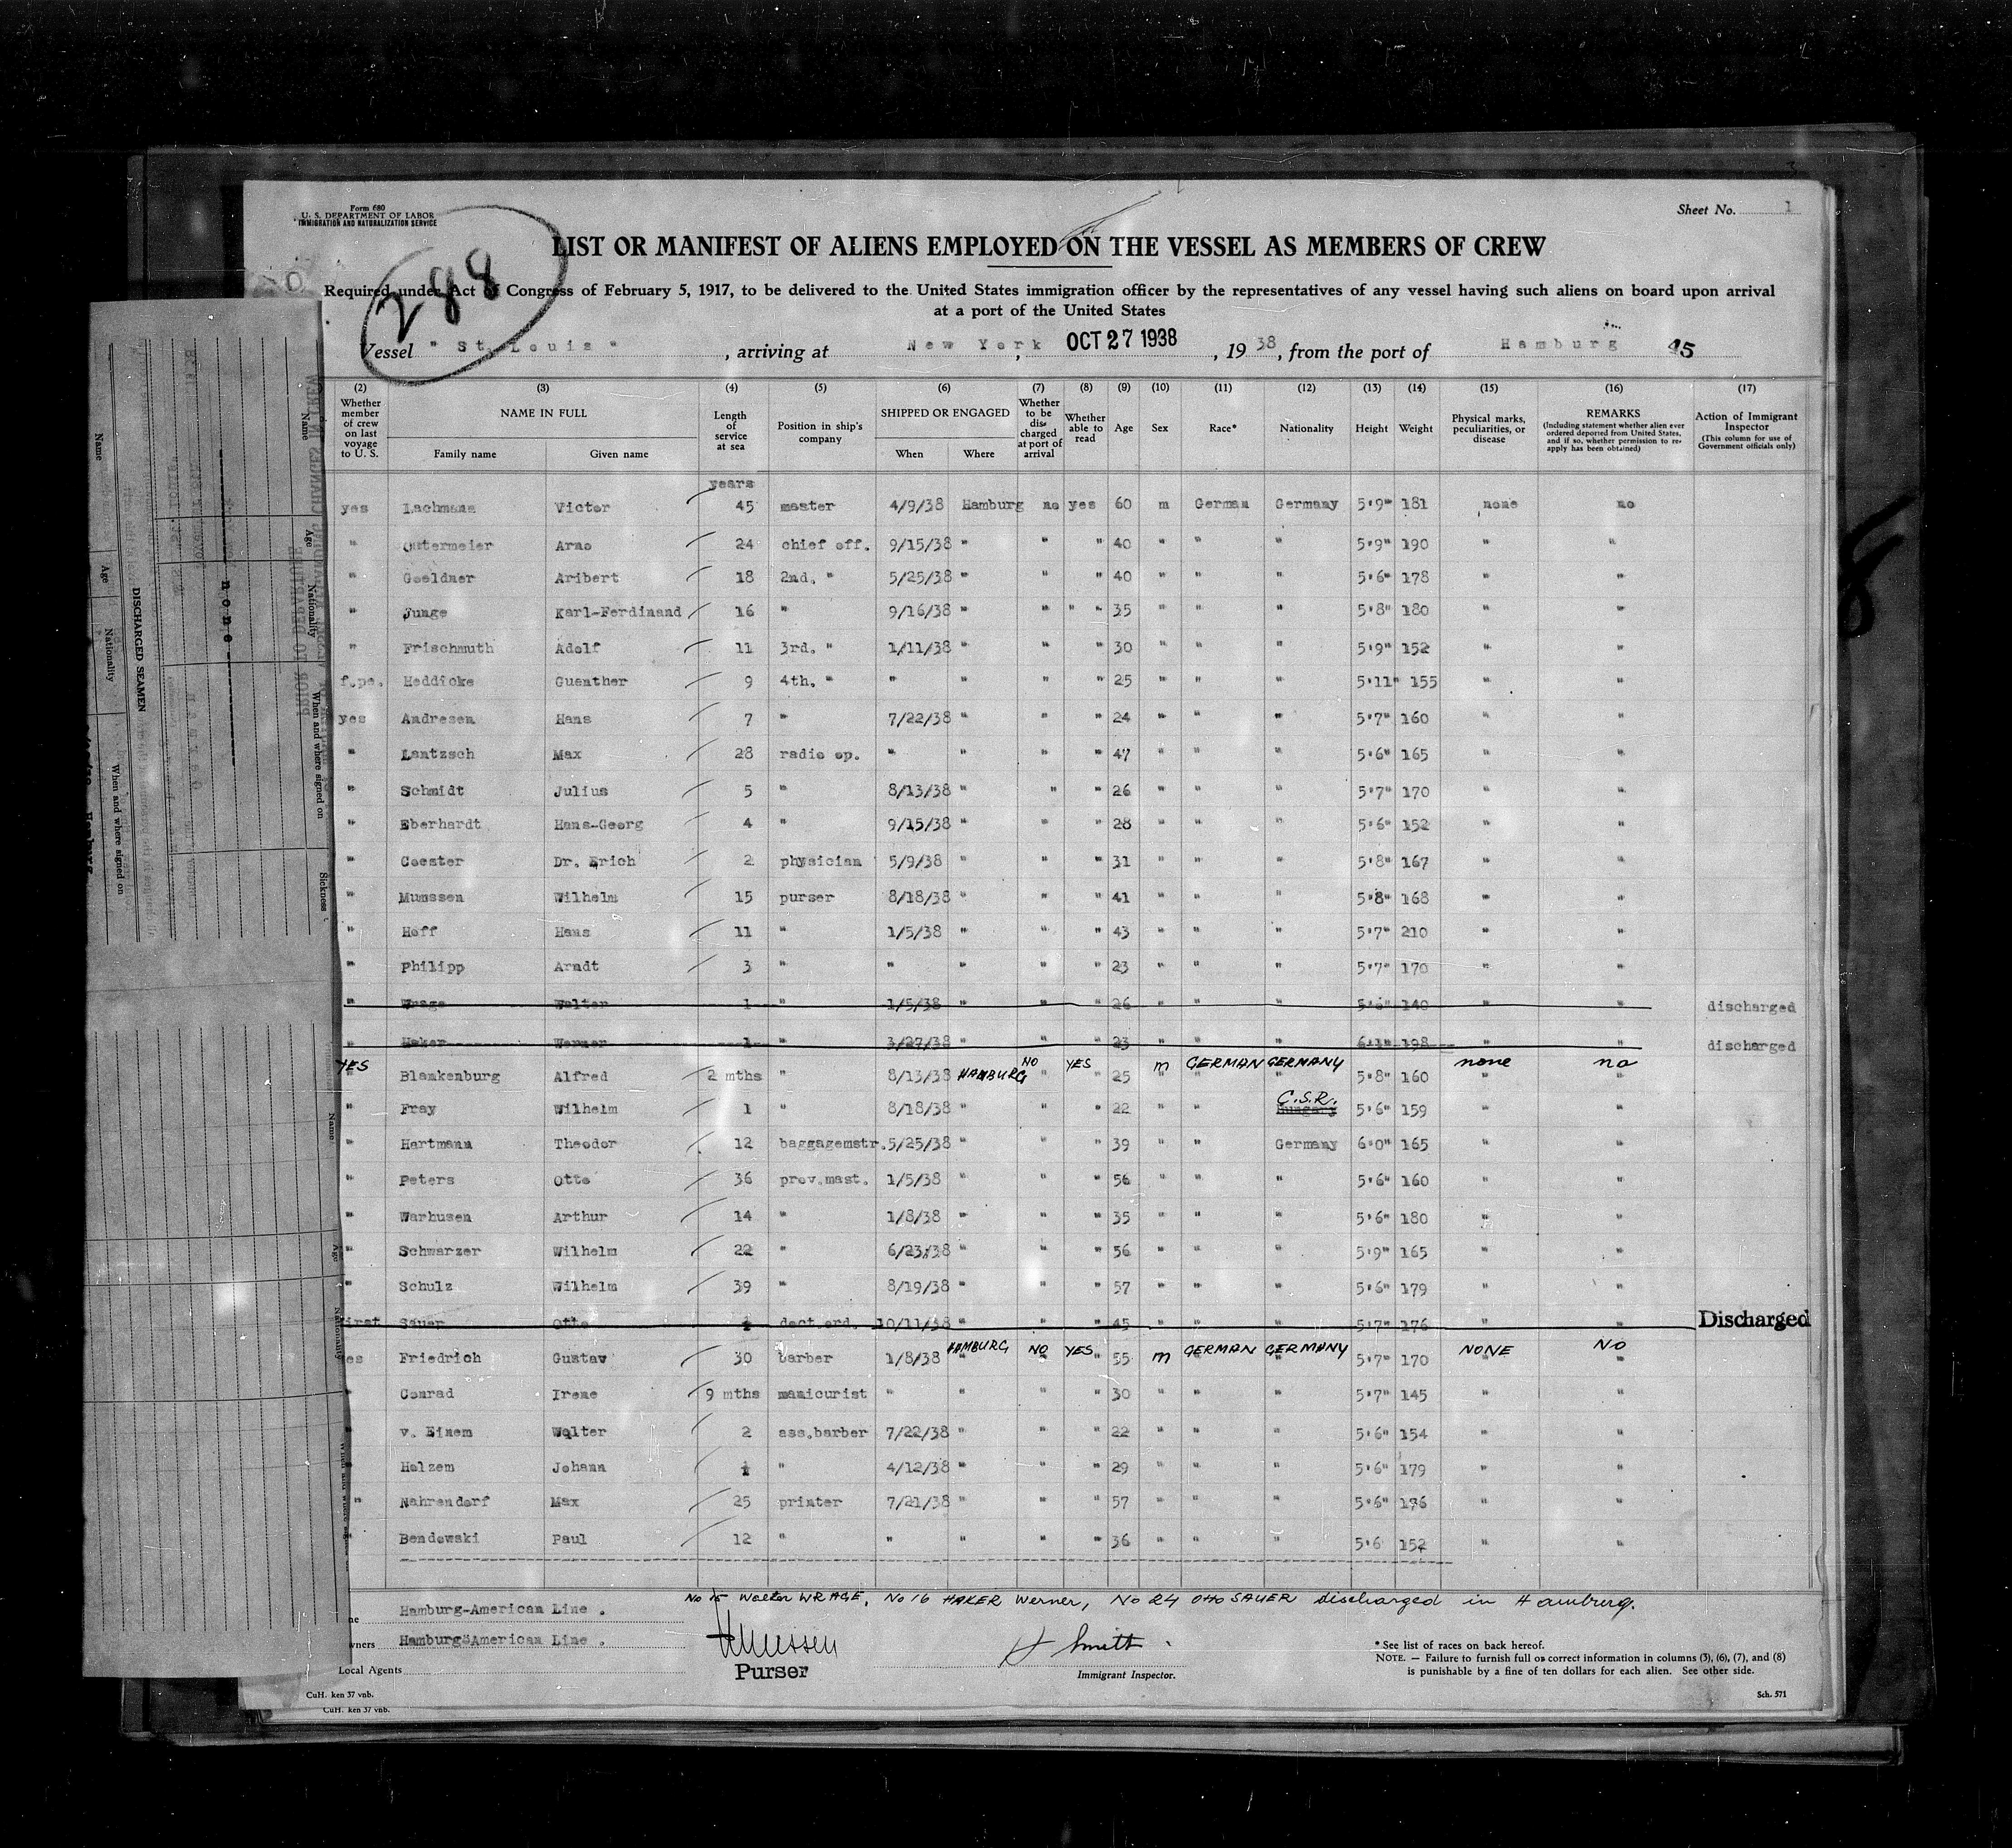 Form 680
U. S. DEPARTMENT OF LABOR
IMMIGRATION AND NATURALIZATION SERVICE
Sheet No. 1
288
LIST OR MANIFEST OF ALIENS EMPLOYED ON THE VESSEL AS MEMBERS OF CREW
Required under Act of Congress of February 5, 1917, to be delivered to the United States immigration officer by the representatives of any vessel having such aliens on board upon arrival
at a port of the United States
Vessel " St. Louis " , arriving at New York , OCT 27 1938 , 19 38, from the port of Hamburg 45
(2) (3) (4) (5) (6) (7) (8) (9) (10) (11) (12) (13) (14) (15) (16) (17)
Whether member of crew on last voyage to U. S. NAME IN FULL Family name Given name Length of service at sea Position in ship's company SHIPPED OR ENGAGED When Where Whether to be discharged at port of arrival Whether able to read Age Sex Race* Nationality Height Weight Physical marks, peculiarities, or disease REMARKS (Including statement whether alien ever ordered deported from United States, and if so, whether permission to re-apply has been obtained) Action of Immigrant Inspector (This column for use of Government officials only)
years
yes Lachmann Victor 45 master 4/9/38 Hamburg no yes 60 m German Germany 5'9" 181 none no
" Ostermeier Arno 24 chief off. 9/15/38 " " " 40 " " " 5'9" 190 " "
" Goeldner Aribert 18 2nd. " 5/25/38 " " " 40 " " " 5'6" 178 " "
" Junge Karl-Ferdinand 16 " 9/16/38 " " " " 35 " " " 5'8" 180 " "
" Frischmuth Adolf 11 3rd. " 1/11/38 " " " 30 " " " 5'9" 152 " "
Heddicke Guenther 9 4th. " " " " " 25 " " " 5'11" 155 " "
yes Andresen Hans 7 " 7/22/38 " " " 24 " " " 5'7" 160 " "
" Lantzsch Max 28 radio op. " " " " 47 " " " 5'6" 165 " "
" Schmidt Julius 5 " 8/13/38 " " " 26 " " " 5'7" 170 " "
" Eberhardt Hans-Georg 4 " 9/15/38 " " " 28 " " " 5'6" 152 " "
" Coester Dr. Erich 2 physician 5/9/38 " " " 31 " " " 5'8" 167 " "
" Mumssen Wilhelm 15 purser 8/18/38 " " " 41 " " " 5'8" 168 " "
" Hoff Hans 11 " 1/5/38 " " " 43 " " " 5'7" 210 " "
" Philipp Arndt 3 " " " " " 23 " " " 5'7" 170 " "
" Wrage Walter 1 " 1/5/38 " " " 26 " " " 5'6" 140 " " discharged
" Haker Werner 1 " 3/27/38 " " " 23 " " " 6'1" 198 " " discharged
YES Blankenburg Alfred 2 mths " 8/13/38 HAMBURG NO YES 25 m GERMAN GERMANY 5'8" 160 none no
" Fray Wilhelm 1 " 8/18/38 " " " 22 " " Hungary C.S.R. 5'6" 159 " "
" Hartmann Theodor 12 baggagemstr. 5/25/38 " " " 39 " " Germany 6'0" 165 " "
" Peters Otto 36 prov.mast. 1/5/38 " " " 56 " " " 5'6" 160 " "
" Warhusen Arthur 14 " 1/8/38 " " " 35 " " " 5'6" 180 " "
" Schwarzer Wilhelm 22 " 6/23/38 " " " 56 " " " 5'9" 165 " "
" Schulz Wilhelm 39 " 8/19/38 " " " 57 " " " 5'6" 179 " "
first Sauer Otto 10/11/38 " " " 45 " " " 5'7" 176 " " Discharged
yes Friedrich Gustav 30 barber 1/8/38 HAMBURG NO YES 55 m GERMAN GERMANY 5'7" 170 NONE NO
" Conrad Irene 9 mths manicurist " " " " 30 " " " 5'7" 145 " "
" v. Einem Walter 2 ass.barber 7/22/38 " " " 22 " " " 5'6" 154 " "
" Holzem Johann " 4/12/38 " " " 29 " " " 5'6" 179 " "
" Nahrendorf Max 25 printer 7/21/38 " " " 57 " " " 5'6" 176 " "
" Bendowski Paul 12 " " " " " 36 " " " 5'6 152 " "
No 15 Walter WRAGE, No 16 HAKER Werner, No 24 Otto SAUER discharged in Hamburg.
Hamburg-American Line .
Hamburg-American Line .
Local Agents
Purser
H Smith
Immigrant Inspector.
* See list of races on back hereof.
NOTE. — Failure to furnish full or correct information in columns (3), (6), (7), and (8)
is punishable by a fine of ten dollars for each alien. See other side.
CuH. ken 37 vnb.
Sch. 571
CuH. ken 37 vnb.
Name
Age
Nationality
When and where signed on
DISCHARGED SEAMEN
none
Name
Age
Nationality
When and where signed on
Sickness
Name
Age
Nationality